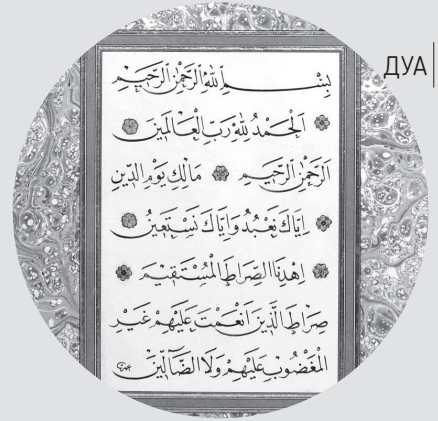 ДУА
بِسْمِ اللّٰهِ الرَّحْمٰنِ الرَّحِيمِ
اَلْحَمْدُ لِلّٰهِ رَبِّ الْعَالَمِينَ
اَلرَّحْمٰنِ الرَّحِيمِ مَالِكِ يَوْمِ الدِّينِ
اِيَّاكَ نَعْبُدُ وَاِيَّاكَ نَسْتَعِينُ
اِهْدِنَا الصِّرَاطَ الْمُسْتَقِيمَ
صِرَاطَ الَّذِينَ اَنْعَمْتَ عَلَيْهِمْ غَيْرِ
الْمَغْضُوبِ عَلَيْهِمْ وَلَا الضَّالِّينَ